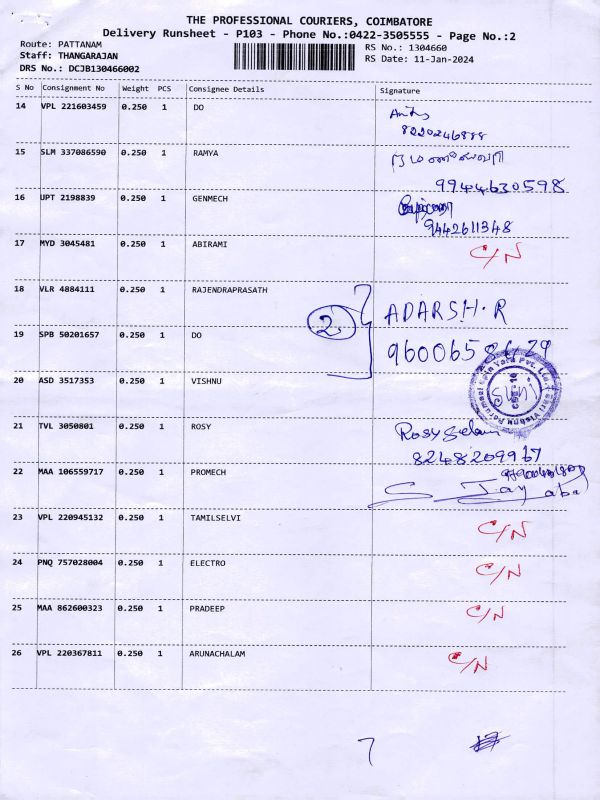 THE PROFESSIONAL COURIERS, COIMBATORE
Delivery Runsheet - P103 - Phone No.:0422-3505555 - Page No.:2
Route: PATTANAM
RS No.: 1304660
Staff: THANGARAJAN
RS Date: 11-Jan-2024
DRS No.: DCJB130466002
S No Consignment No Weight PCS Consignee Details Signature
14 VPL 221603459 0.250 1 DO
8220246888
15 SLM 337086590 0.250 1 RAMYA
9944630598
16 UPT 2198839 0.250 1 GENMECH
9442611348
17 MYD 3045481 0.250 1 ABIRAMI C/N
18 VLR 4884111 0.250 1 RAJENDRAPRASATH
2 ADARSH.R
19 SPB 50201657 0.250 1 DO
20 ASD 3517353 0.250 1 VISHNU
21 TVL 3050801 0.250 1 ROSY Rosy
8248209967
22 MAA 106559717 0.250 1 PROMECH
23 VPL 220945132 0.250 1 TAMILSELVI C/N
24 PNQ 757028004 0.250 1 ELECTRO C/N
25 MAA 862600323 0.250 1 PRADEEP C/N
26 VPL 220367811 0.250 1 ARUNACHALAM C/N
7